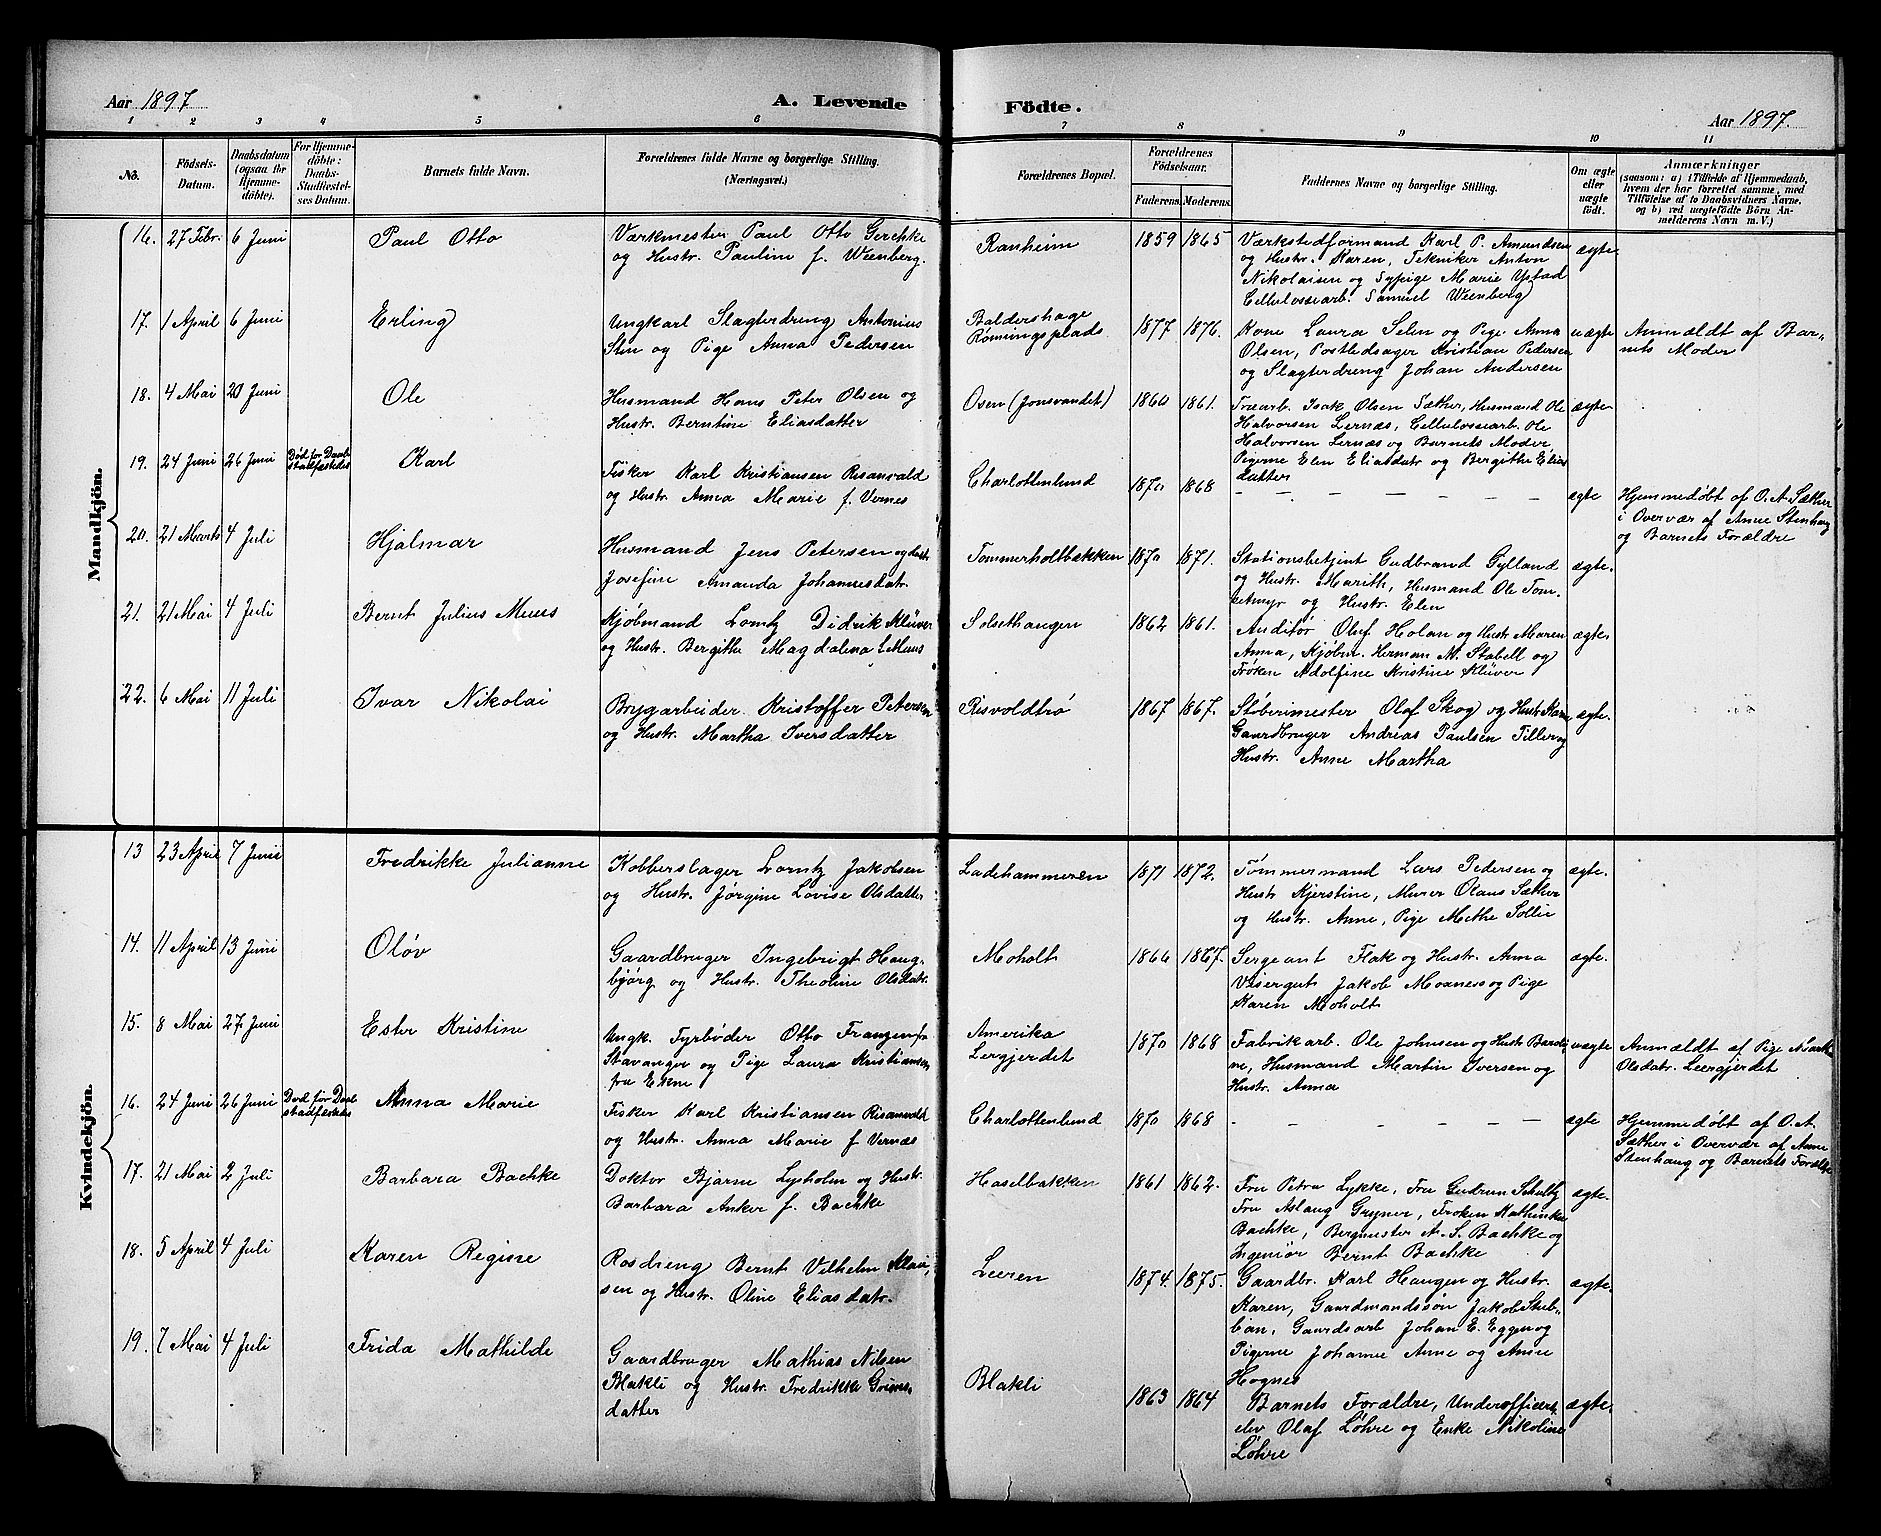 Aar 1897
A. Levende Födte.
Aar 1897.
1 2 3 4 5 6 7 8 9 10 11
No.
Födsels-
Datum.
Daabsdatum
(ogsaa for
Hjemme-
døbte).
For Hjemme-
døbte:
Daabs-
Stadfæstel-
ses Datum.
Barnets fulde Navn.
Forældrenes fulde Navne og borgerlige Stilling.
(Næringsvei.)
Forældrenes Bopæl.
Forældrenes
Födselsaar.
Faderens. Moderens.
Faddernes Navne og borgerlige Stilling.
Om ægte
eller
uægte
født.
Anmærkninger
(saasom: a) i Tilfælde af Hjemmedaab,
hvem der har forrettet samme, med
Tilföielse af to Daabsvidners Navne,
og b) ved uægtefødte Börn An-
melderens Navn m. V.)
Mandkjön.
16. 27 Febr. 6 Juni
Paul Otto
Værkmester Paul Otto Gerchke
og Hustr. Pauline f. Weenberg.
Ranheim
1859 1865
Værkstedformand Karl P. Amundsen
og Hustr. Karen, Tekniker Anton
Nikolaisen og Sypige Marie Ystad
Cellulossearb. Samuel Weenberg
ægte
17. 1 April 6 Juni
Erling
Ungkarl Slagterdreng Antonius
Sten og Pige Anna Pedersen
Baldershage
Rømningsplads
1877 1876.
Kone Laura Selen og Pige Anna
Olsen, Postledsager Kristian Pedersen
og Slagterdreng Johan Andersen
uægte
Anmældt af Bar-
nets Moder
18. 4 Mai 20 Juni
Ole
Husmand Hans Peter Olsen og
Hustr. Berntine Eliasdatter
Osen (Jonsvandet)
1860 1861.
Træarb. Isak Olsen Sæther, Husmand Ole
Halvorsen Lernæs, Cellulossearb. Ole
Halvorsen Lernæs og Barnets Moder
Pigerne Elen Eliasdatr og Bergithe Elias
datter
ægte
19. 24 Juni 26 Juni
Død før Daab
stadfæstedes
Karl
Fisker Karl Kristiansen Risanvald
og Hustr. Anna Marie f. Vernes
Charlottenlund
1870 1868
— — — — — — —
ægte
Hjemmedøbt af O. A. Sæther
i Overvær af Anne Stenhaug
og Barnets Forældre
20. 21 Marts 4 Juli
Hjalmar
Husmand Jens Petersen og Hustr.
Josefine Amanda Johannesdatr.
Tommerholtbækken
1870 1871.
Stationsbetjent Gudbrand Gylland
og Hustr. Marith, Husmand Ole Tom-
setmyr og Hustr. Elen
ægte.
21. 21 Mai 4 Juli
Bernt Julius Muus
Kjøbmand Lorntz Didrik Klüver
og Hustr. Bergithe Magdalena f. Muus
Solsethaugen
1862 1861.
Auditør Oluf Holan og Hustr. Maren
Anna, Kjøbm. Herman M. Stabell og
Frøken Adolfine Kristine Klüver
ægte.
22. 6 Mai 11 Juli
Ivar Nikolai
Brygarbeider Kristoffer Petersen
og Hustr. Martha Iversdatter
Risvoldtrø
1867 1867.
Støberimester Olaf Skog og Hustr. Karen
Gaardbruger Andreas Paulsen Tiller og
Hustr. Anne Martha
ægte.
Kvindekjön.
13 23 April 7 Juni
Fredrikke Julianne
Kobberslager Lorntz Jakobsen
og Hustr. Jørgine Lovise Olsdatter
Ladehammeren
1871 1872.
Tømmermand Lars Pedersen og
Hustr Kjerstine, Murer Olaus Sæther
og Hustr. Anne, Pige Methe Sollie
ægte.
14. 11 April 13 Juni
Oløv
Gaardbruger Ingebrigt Haug-
bjørg og Hustr. Theoline Olsdatr.
Moholt
1866 1867.
Sergeant Flak og Hustr. Anna
Visergut Jakob Moxness og Pige
Karen Moholt
ægte.
15. 8 Mai 27 Juni
Ester Kristine
Ungk. Fyrbøder Otto Franzen fra
Stavanger og Pige Laura Kristiansen
fra Ekne
Amerika
Lergjerdet
1870 1868
Fabrikarb. Ole Johnsen og Hustr Bardi-
ne, Husmand Martin Iversen og
Hustr. Anna
uægte
Anmældt af Pige Marth
Olsdatr. Leergjerdet
16. 24 Juni 26 Juni
Død før Daab
stadfæstedes
Anna Marie
Fisker Karl Kristiansen Risanvold
og Hustr. Anna Marie f Vernæs
Charlottenlund
1870 1868
- - - - - - —
ægte
Hjemmedøbt af O. A.
Sæther i Overvær af Anne
Stenhaug og Barnets Forældre
17. 21 Mai 2 Juli
Barbara Bachke
Doktor Bjarne Lysholm og Hustr.
Barbara Anker f. Bachke
Haselbakken
1861 1862.
Fru Petra Lykke, Fru Gudrun Schultz
Fru Aslaug Gryner, Frøken Kathinka
Bachke, Bergmester A. S. Bachke og
Ingeniør Bernt Bachke
ægte.
18. 5 April 4 Juli
Karen Regine
Rosdreng Bernt Vilhelm Klau-
sen og Hustr. Oline Eliasdatr.
Leeren
1874. 1875.
Gaardbr. Karl Haugen og Hustr.
Karen, Gaardmandssøn Jakob Stub-
ban, Gaardsarb Johan E. Eggen og
Pigerne Johanne Anne og Anne
Hognes
ægte.
19. 7 Mai 4 Juli
Frida Mathilde
Gaardbruger Mathias Nilsen
Blakli og Hustr. Fredrikke Grims-
datter
Blakli
1863 1864
Barnets Forældre, Underofficers-
elev Olaf Løhre og Enke Nikoline
Løhre
ægte.